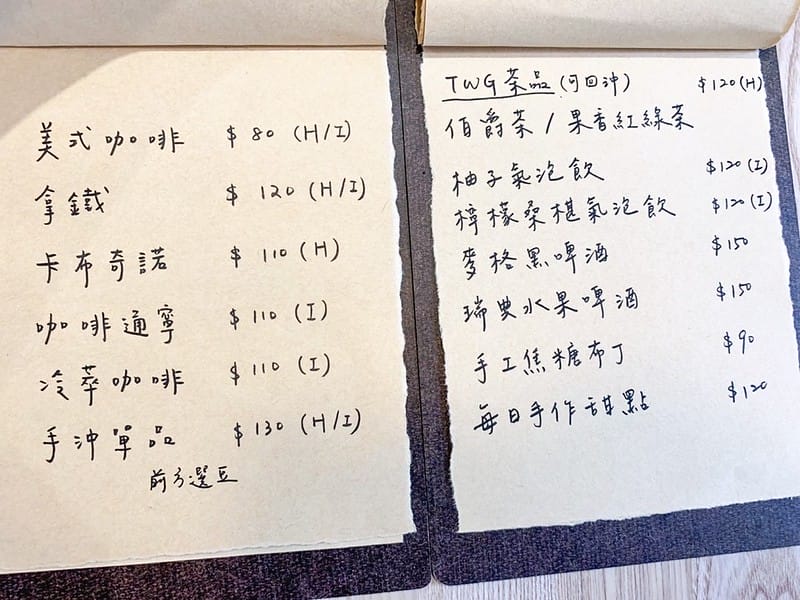 美式咖啡 $80 (H/I)
拿鐵 $120 (H/I)
卡布奇諾 $110 (H)
咖啡通寧 $110 (I)
冷萃咖啡 $110 (I)
手沖單品 $130 (H/I)
前方選豆
TWG茶品 (可回沖) $120 (H)
伯爵茶 / 果香紅綠茶
柚子氣泡飲 $120 (I)
檸檬桑椹氣泡飲 $120 (I)
麥格黑啤酒 $150
瑞典水果啤酒 $150
手工焦糖布丁 $90
每日手作甜點 $120